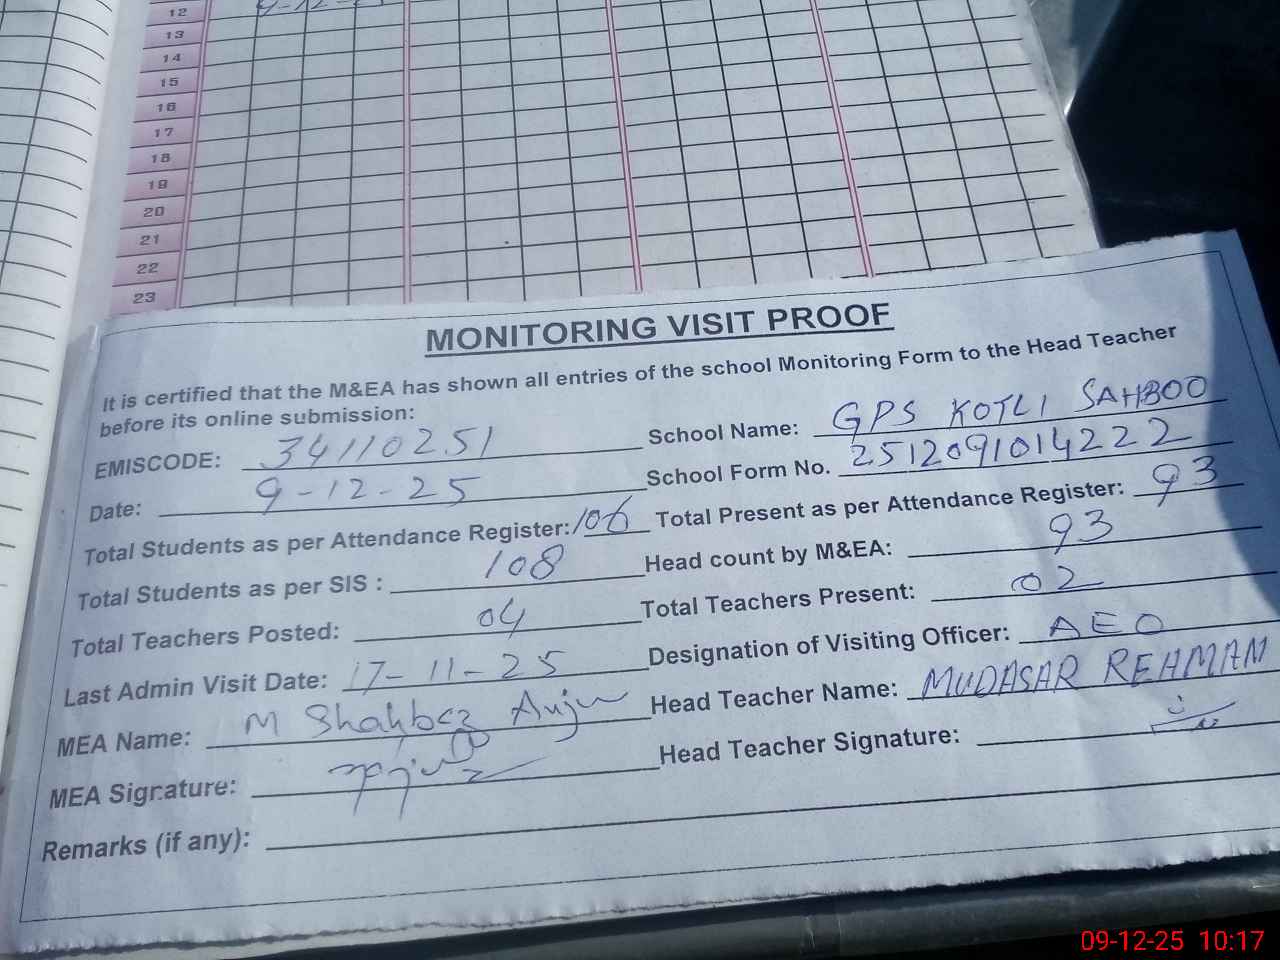 12 9-12-25
13
14
15
16
17
18
19
20
21
22
23
MONITORING VISIT PROOF
It is certified that the M&EA has shown all entries of the school Monitoring Form to the Head Teacher
before its online submission:
EMISCODE: 34110251 School Name: GPS KOTLI SAHBOO
Date: 9-12-25 School Form No. 2512091014222
Total Students as per Attendance Register: 106 Total Present as per Attendance Register: 93
Total Students as per SIS : 108 Head count by M&EA: 93
Total Teachers Posted: 04 Total Teachers Present: 02
Last Admin Visit Date: 17-11-25 Designation of Visiting Officer: AEO
MEA Name: M Shahbaz Anjum Head Teacher Name: MUDASAR REHMAN
MEA Signature: Head Teacher Signature:
Remarks (if any):
09-12-25 10:17